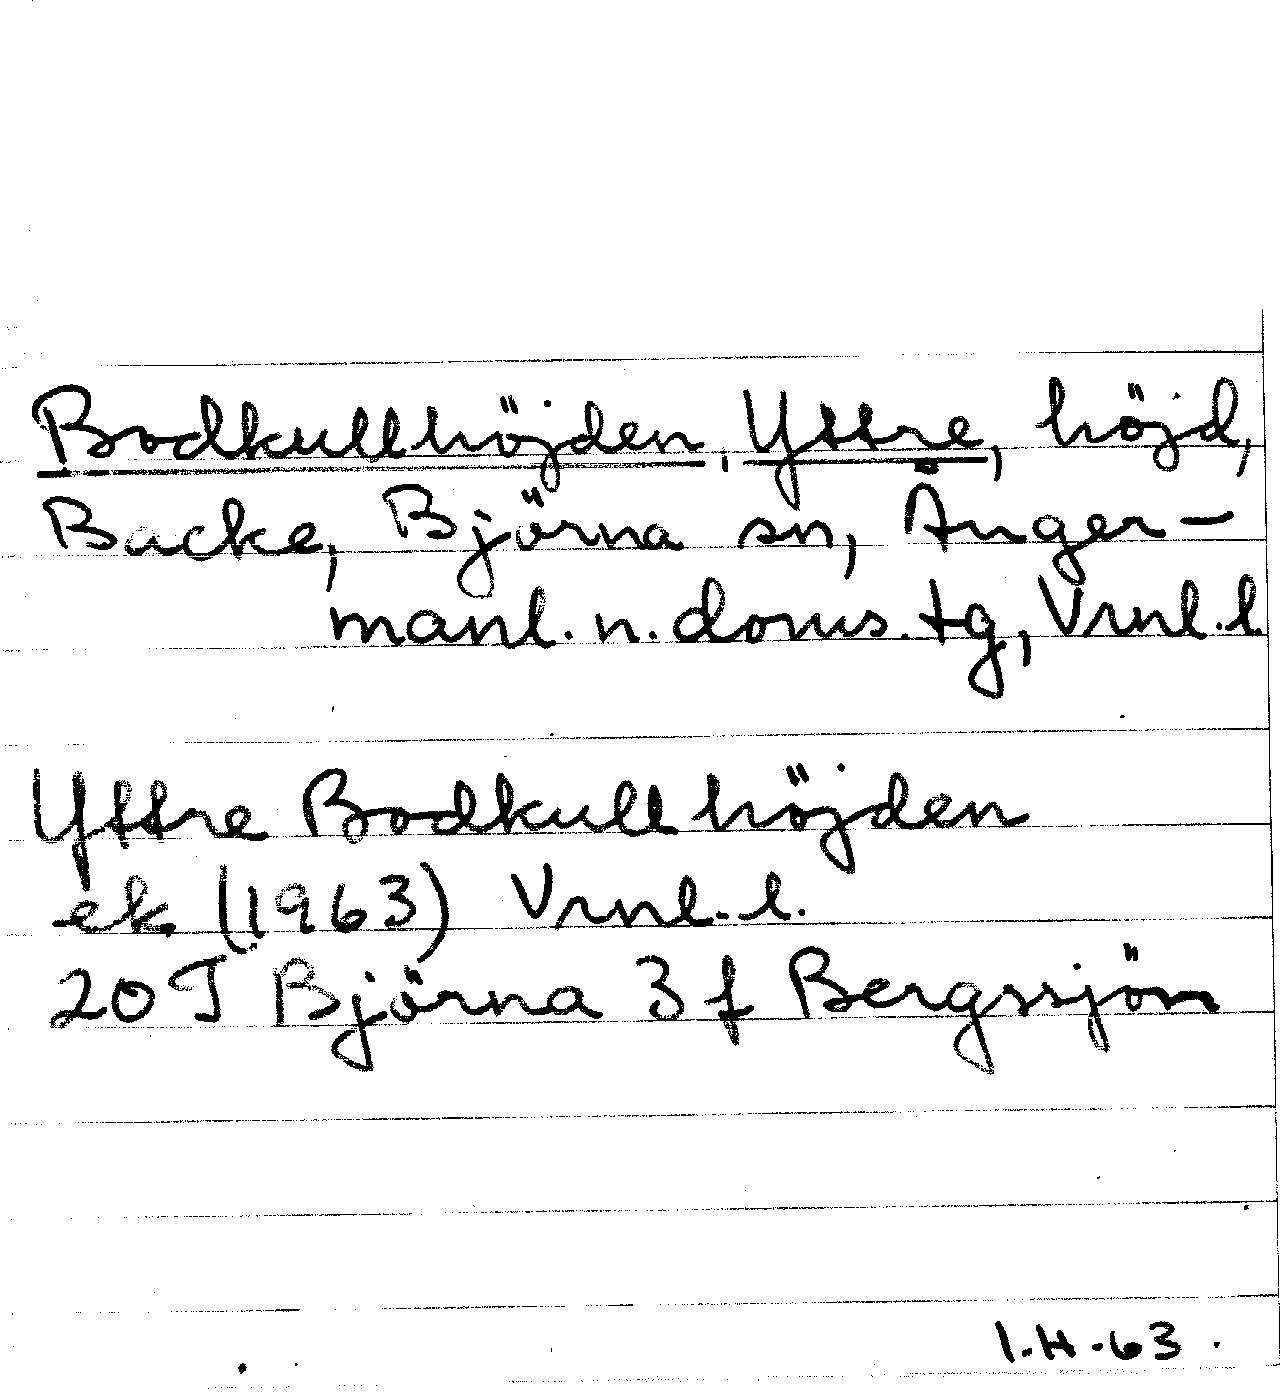 Bodkullhöjden, Yttre, höjd,
Backe, Björna sn, Ånger-
manl. n. doms. tg, Vrnl. l.
Yttre Bodkullhöjden
ek. (1963) Vrnl. l.
20 J Björna 3 f Bergssjön
I.H. 63.